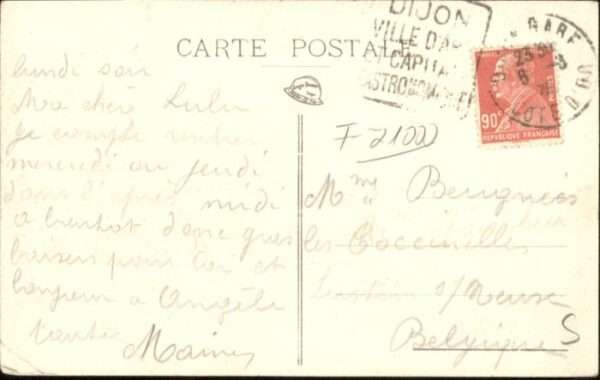 CARTE POSTALE
DIJON
VILLE D'A
CAPITA
GASTRONOM
GARE
COTE D'OR
90c
REPUBLIQUE FRANÇAISE
lundi soir
Ma chère Lulu
Je compte rentrer
mercredi ou jeudi
dans l'après midi
à bientôt donc gros
baisers pour toi et
bonjour à Angèle
F 21000
Mme Beugnies
les Coccinelles
s/ Meuse
Belgique
S